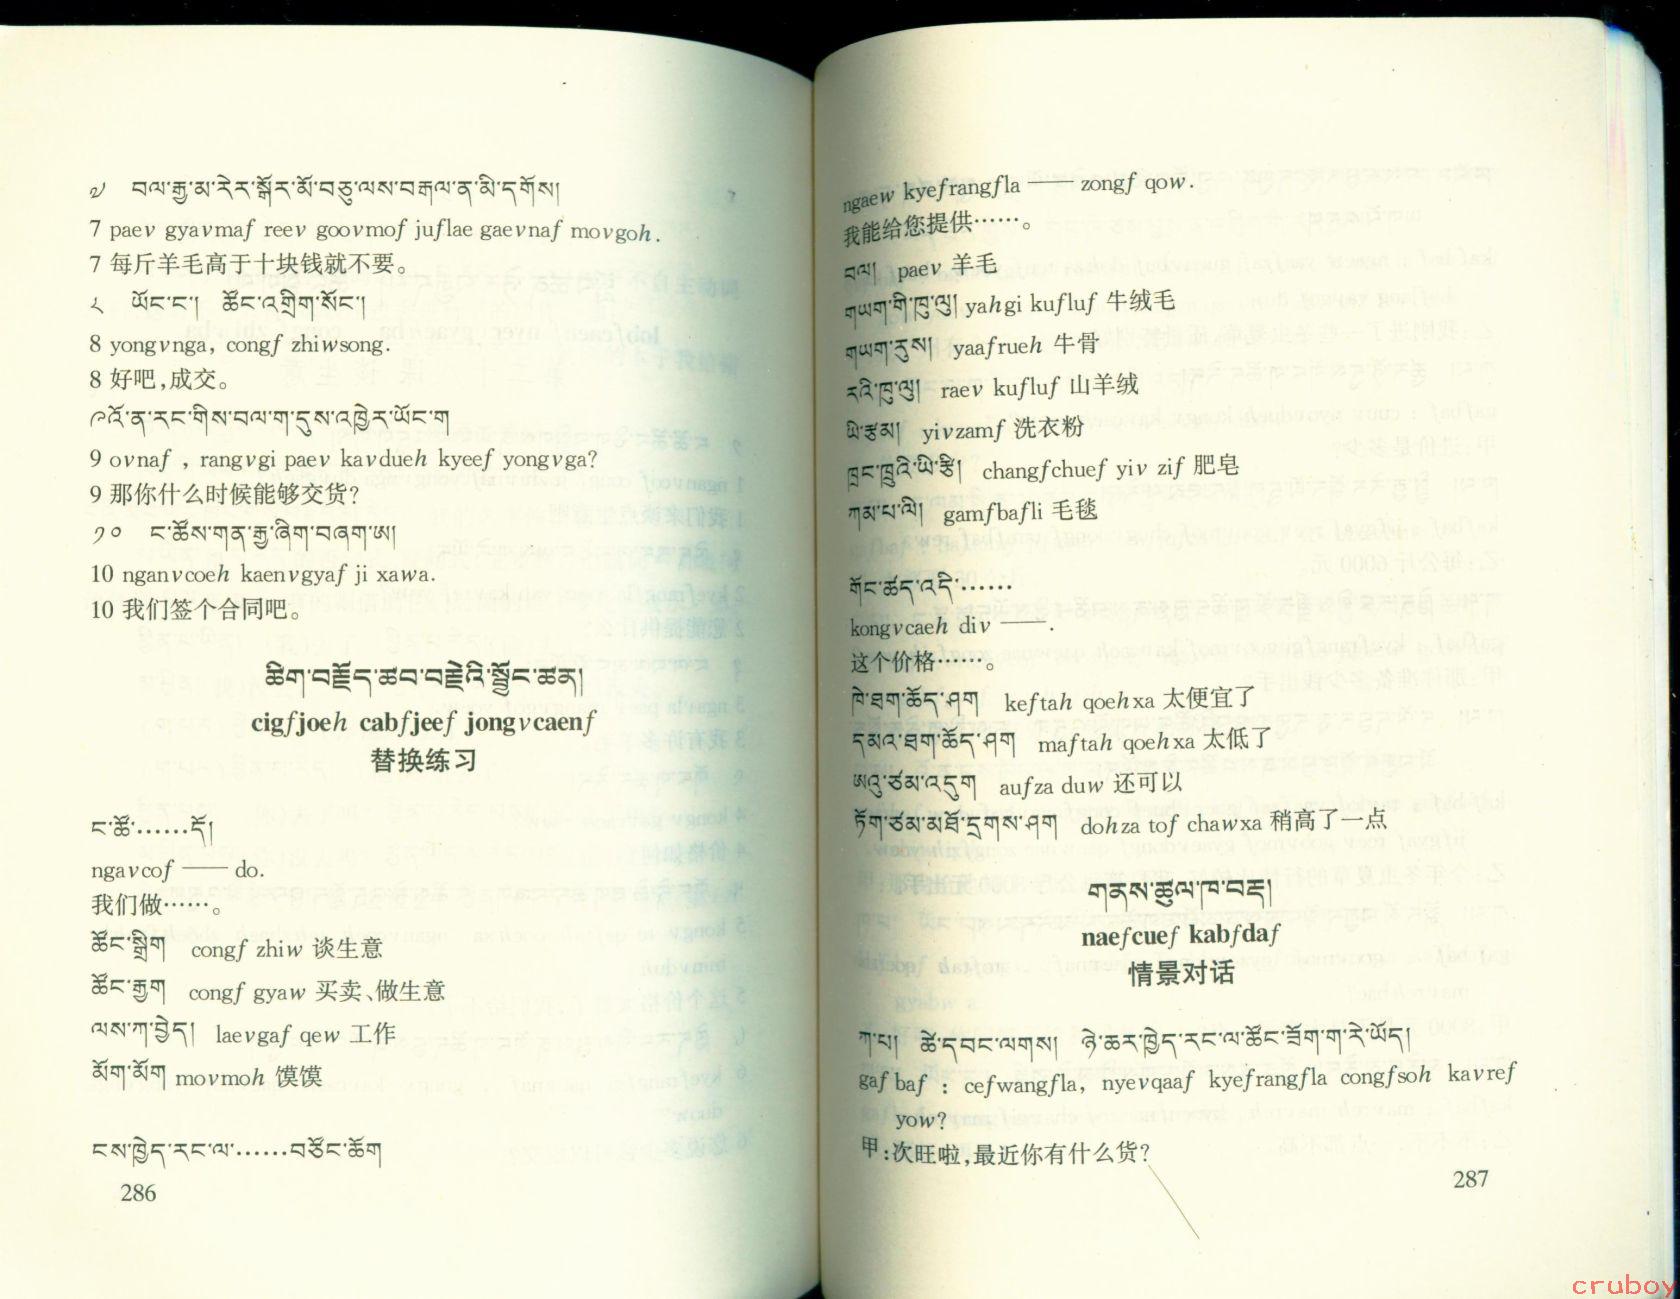 ༧ བལ་རྒྱ་མ་རེར་སྒོར་མོ་བཅུ་ལས་བརྒལ་ན་མི་དགོས།
7 paev gyavmaf reev goovmof juflae gaevnaf movgoh.
7 每斤羊毛高于十块钱就不要。
༨ ཡོང་ང་། ཚོང་འགྲིག་སོང་།
8 yongvnga, congf zhiwsong.
8 好吧,成交。
༩ འོ་ན་རང་གིས་བལ་ག་དུས་འཁྱེར་ཡོང་ག
9 ovnaf , rangvgi paev kavdueh kyeef yongvga?
9 那你什么时候能够交货?
༡༠ ང་ཚོས་གན་རྒྱ་ཞིག་བཞག་ཨ།
10 nganvcoeh kaenvgyaf ji xawa.
10 我们签个合同吧。
ཚིག་བརྗོད་ཚབ་བརྗེའི་སྦྱོང་ཚན།
cigfjoeh cabfjeef jongvcaenf
替换练习
ང་ཚོ་……དོ།
ngavcof —— do.
我们做……。
ཚོང་སྒྲིག congf zhiw 谈生意
ཚོང་རྒྱག congf gyaw 买卖、做生意
ལས་ཀ་བྱེད། laevgaf qew 工作
མོག་མོག movmoh 馍馍
ངས་ཁྱེད་རང་ལ་……བཙོང་ཆོག
286
ngaew kyefrangfla —— zongf qow.
我能给您提供……。
བལ། paev 羊毛
གཡག་གི་ཁུ་ལུ། yahgi kufluf 牛绒毛
གཡག་རུས། yaafrueh 牛骨
རའི་ཁུ་ལུ། raev kufluf 山羊绒
ཡི་ཙམ། yivzamf 洗衣粉
ཁྲང་ཁྲུའི་ཡི་ཙི། changfchuef yiv zif 肥皂
ཀམ་པ་ལི། gamfbafli 毛毯
གོང་ཚད་འདི་……
kongvcaeh div ——.
这个价格……。
ཁེ་ཐག་ཆོད་ཤག keftah qoehxa 太便宜了
དམའ་ཐག་ཆོད་ཤག maftah qoehxa 太低了
ཨའུ་ཙམ་འདུག aufza duw 还可以
ཏོག་ཙམ་མཐོ་དྲགས་ཤག dohza tof chawxa 稍高了一点
གནས་ཚུལ་ཁ་བརྡ།
naefcuef kabfdaf
情景对话
ཀ་པ། ཚེ་དབང་ལགས། ཉེ་ཆར་ཁྱེད་རང་ལ་ཚོང་ཟོག་ག་རེ་ཡོད།
gaf baf : cefwangfla, nyevqaaf kyefrangfla congfsoh kavref
yow?
甲:次旺啦,最近你有什么货?
287
cruboy